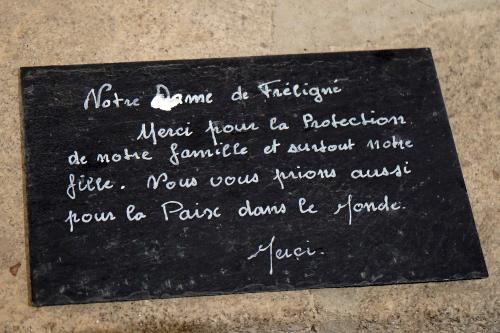 Notre Dame de Fréligné
Merci pour la Protection
de notre famille et surtout notre
fille. Nous vous prions aussi
pour la Paix dans le Monde.
Merci.